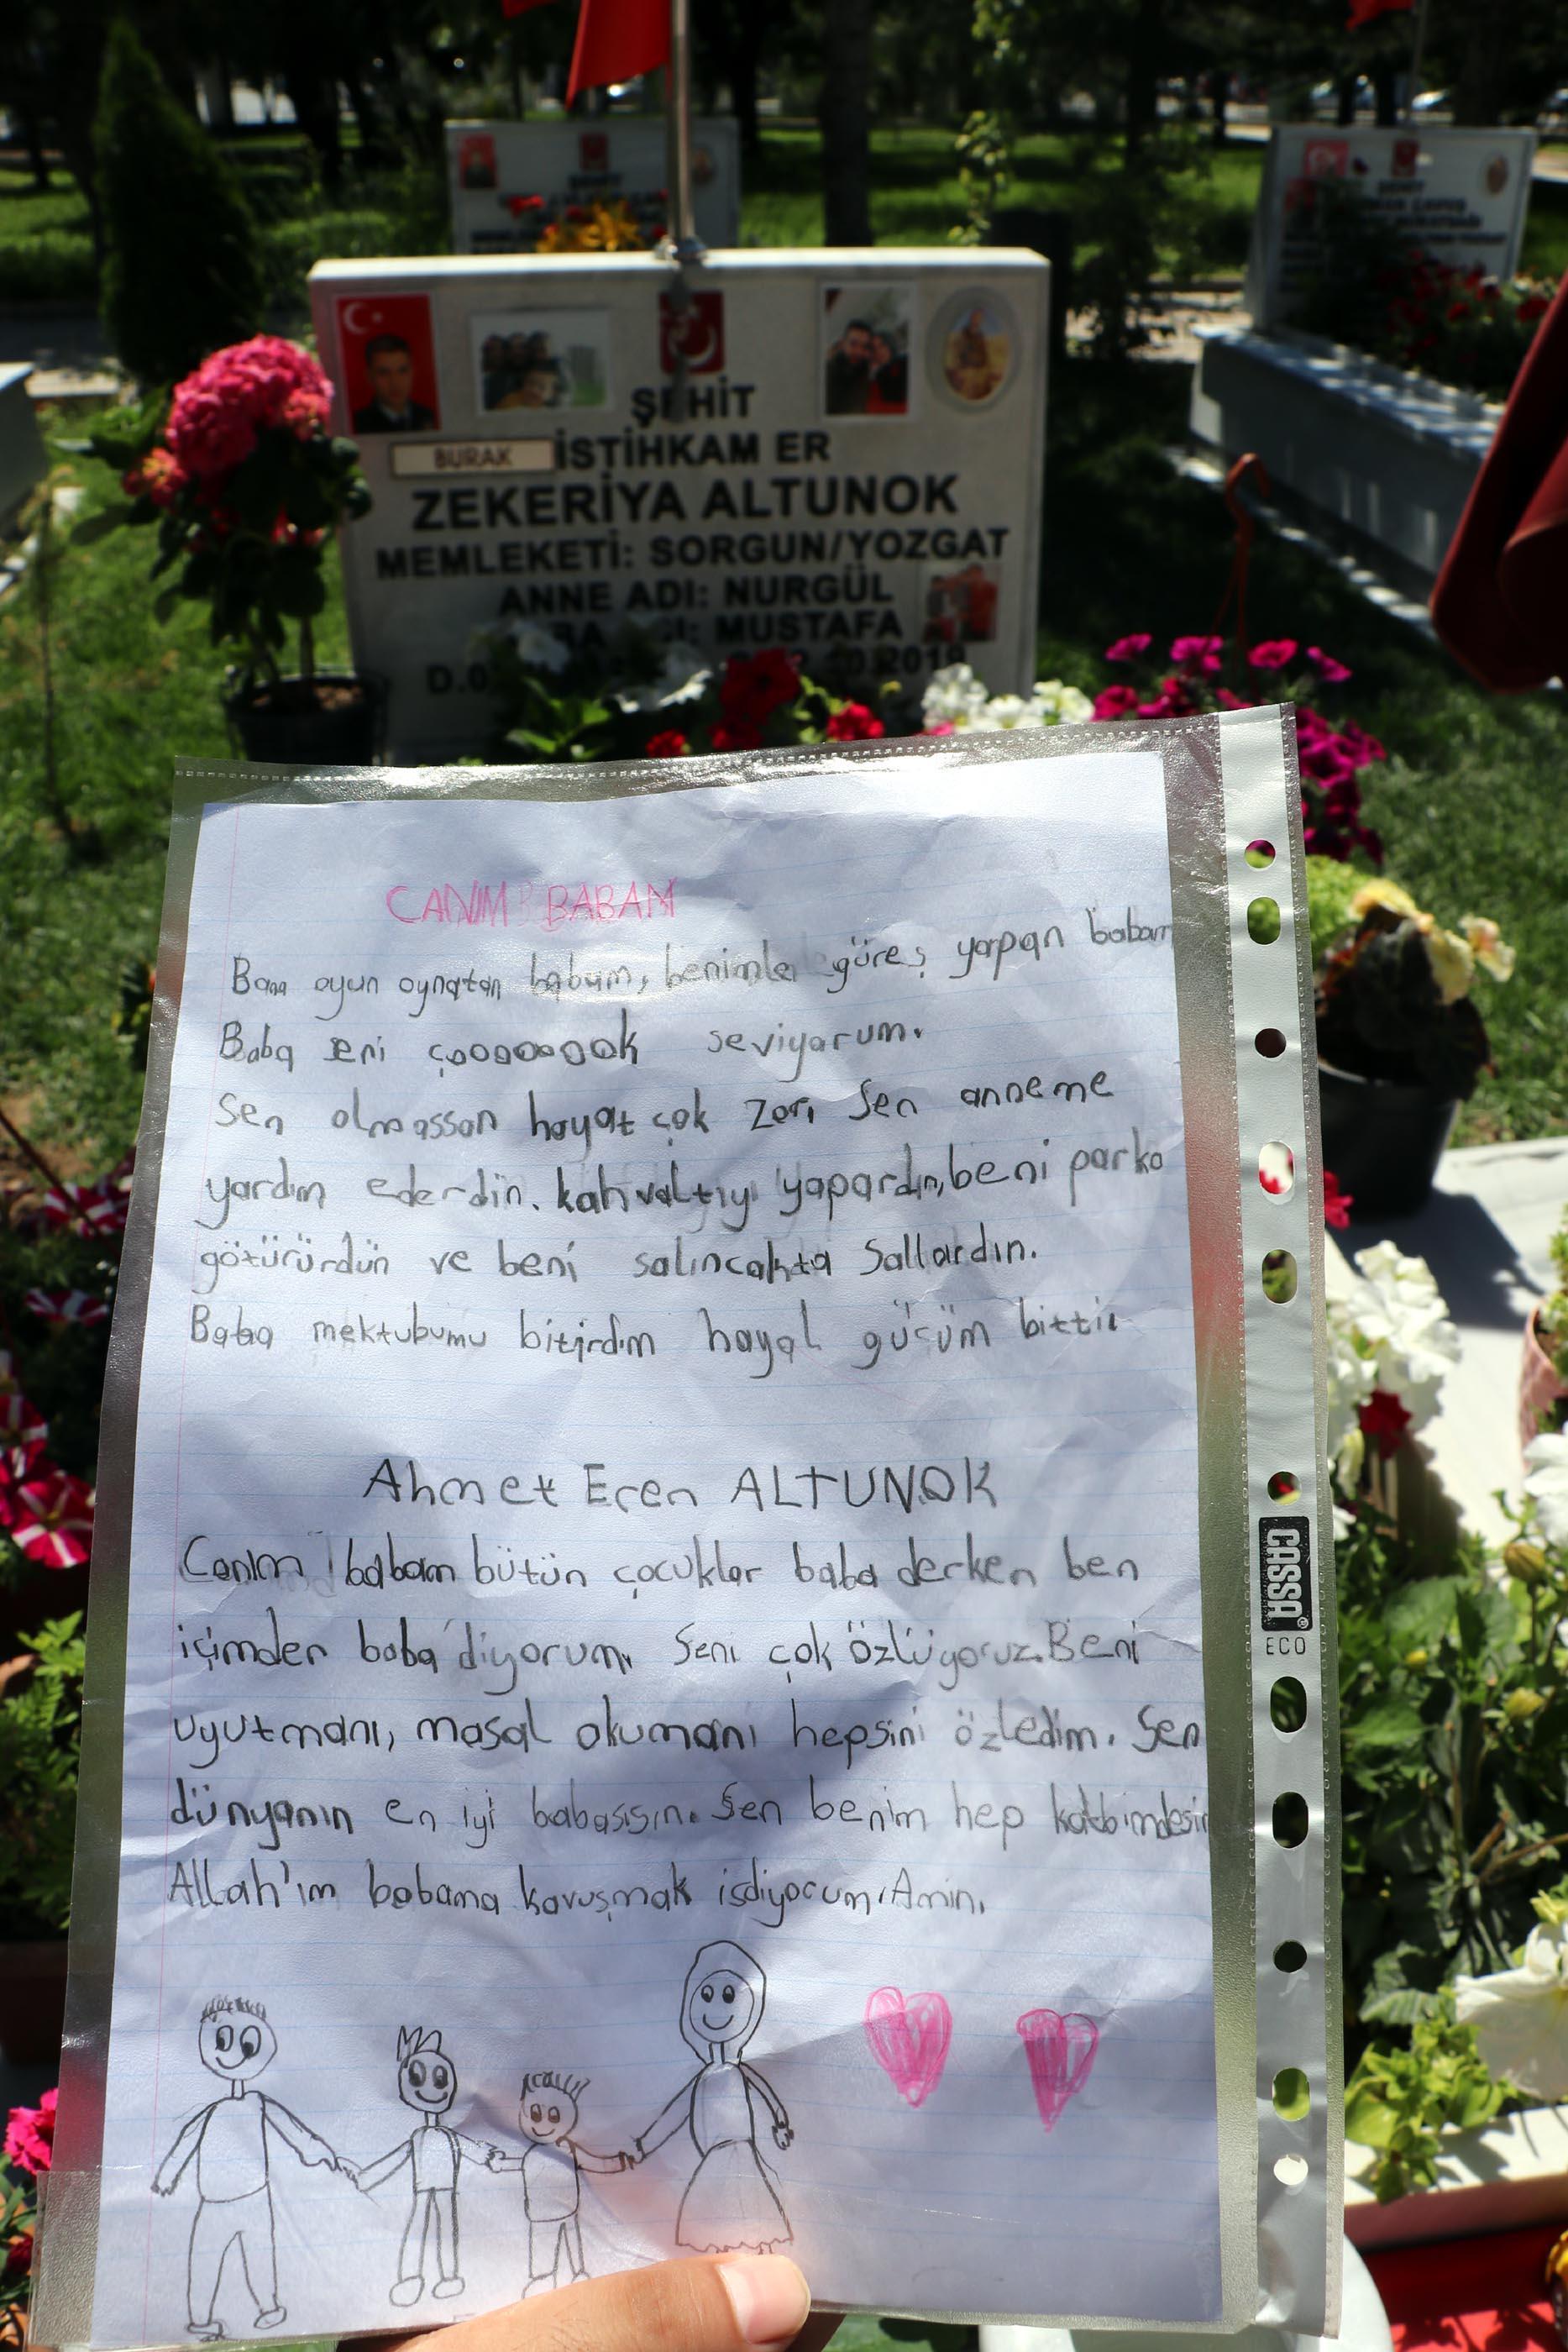 ŞEHİT
BURAK
İSTİHKAM ER
ZEKERİYA ALTUNOK
MEMLEKETİ: SORGUN/YOZGAT
ANNE ADI: NURGÜL
MUSTAFA
2019
CANIM BABAM
Bana oyun oynatan babam, benimle güreş yapan babam
Baba seni çoooooook seviyorum.
Sen olmassan hayat çok zor. Sen anneme
yardım ederdin. kahvaltıyı yapardın, beni parka
götürürdün ve beni salıncakta sallardın.
Baba mektubumu bitirdim hayal gücüm bitti.
Ahmet Eren ALTUNOK
Canım babam bütün çocuklar baba derken ben
içimden baba diyorum. Seni çok özlüyoruz. Beni
uyutmanı, masal okumanı hepsini özledim. Sen
dünyanın en iyi babasısın. Sen benim hep kalbimdesin
Allah'ım babama kavuşmak isdiyorum. Amin.
CASSA
ECO